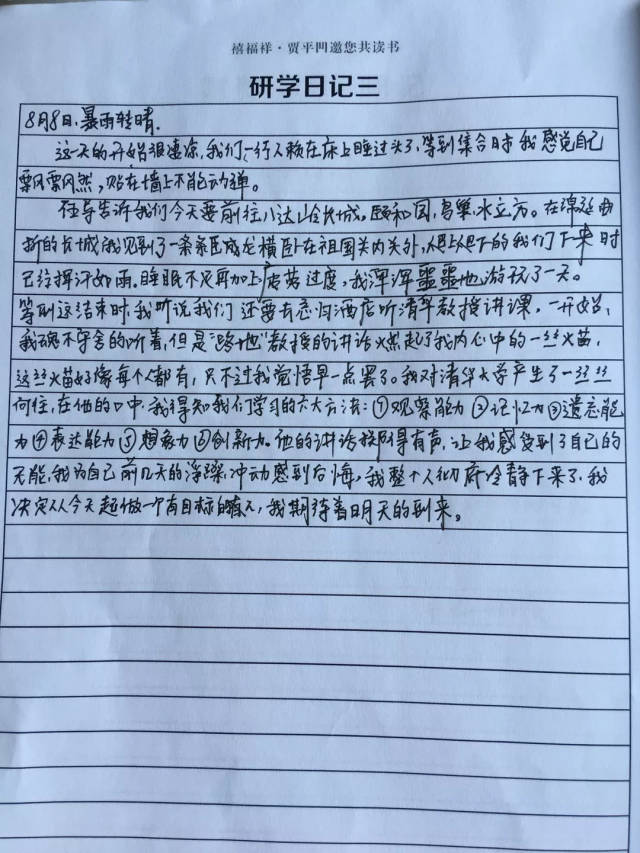 禧福祥·贾平凹邀您共读书
研学日记三
8月8日,暴雨转晴.
这一天的开始很凄凉,我们一行人赖在床上睡过头了,等到集合时我感觉自己
飘飘然,贴在墙上不能动弹。
任导告诉我们今天要前往八达岭长城。颐和园,鸟巢,水立方。在绵延曲
折的长城我见到了一条条巨成龙横卧在祖国关内关外,爬上爬下的我们下来时
已经挥汗如雨。睡眠不足再加上疲劳过度,我浑浑噩噩地游玩了一天。
等到这结束时,我听说我们还要去忘归酒店听清华教授讲课。一开始,
我魂不守舍的听着,但是"路地"教授的讲话燃起了我内心中的一丝火苗,
这丝火苗好像每个人都有,只不过我觉悟早一点罢了。我对清华大学产生了一丝丝
向往,在他的口中,我得知我们学习的六大方法:①观察能力②记忆力③遗忘能
力④表达能力⑤想象力⑥创新力。他的讲话掷地有声,让我感受到了自己的
无能,我为自己前几天的浮躁冲动感到后悔,我整个人彻底冷静下来了.我
决定从今天起做一个有目标的人,我期待着明天的到来。